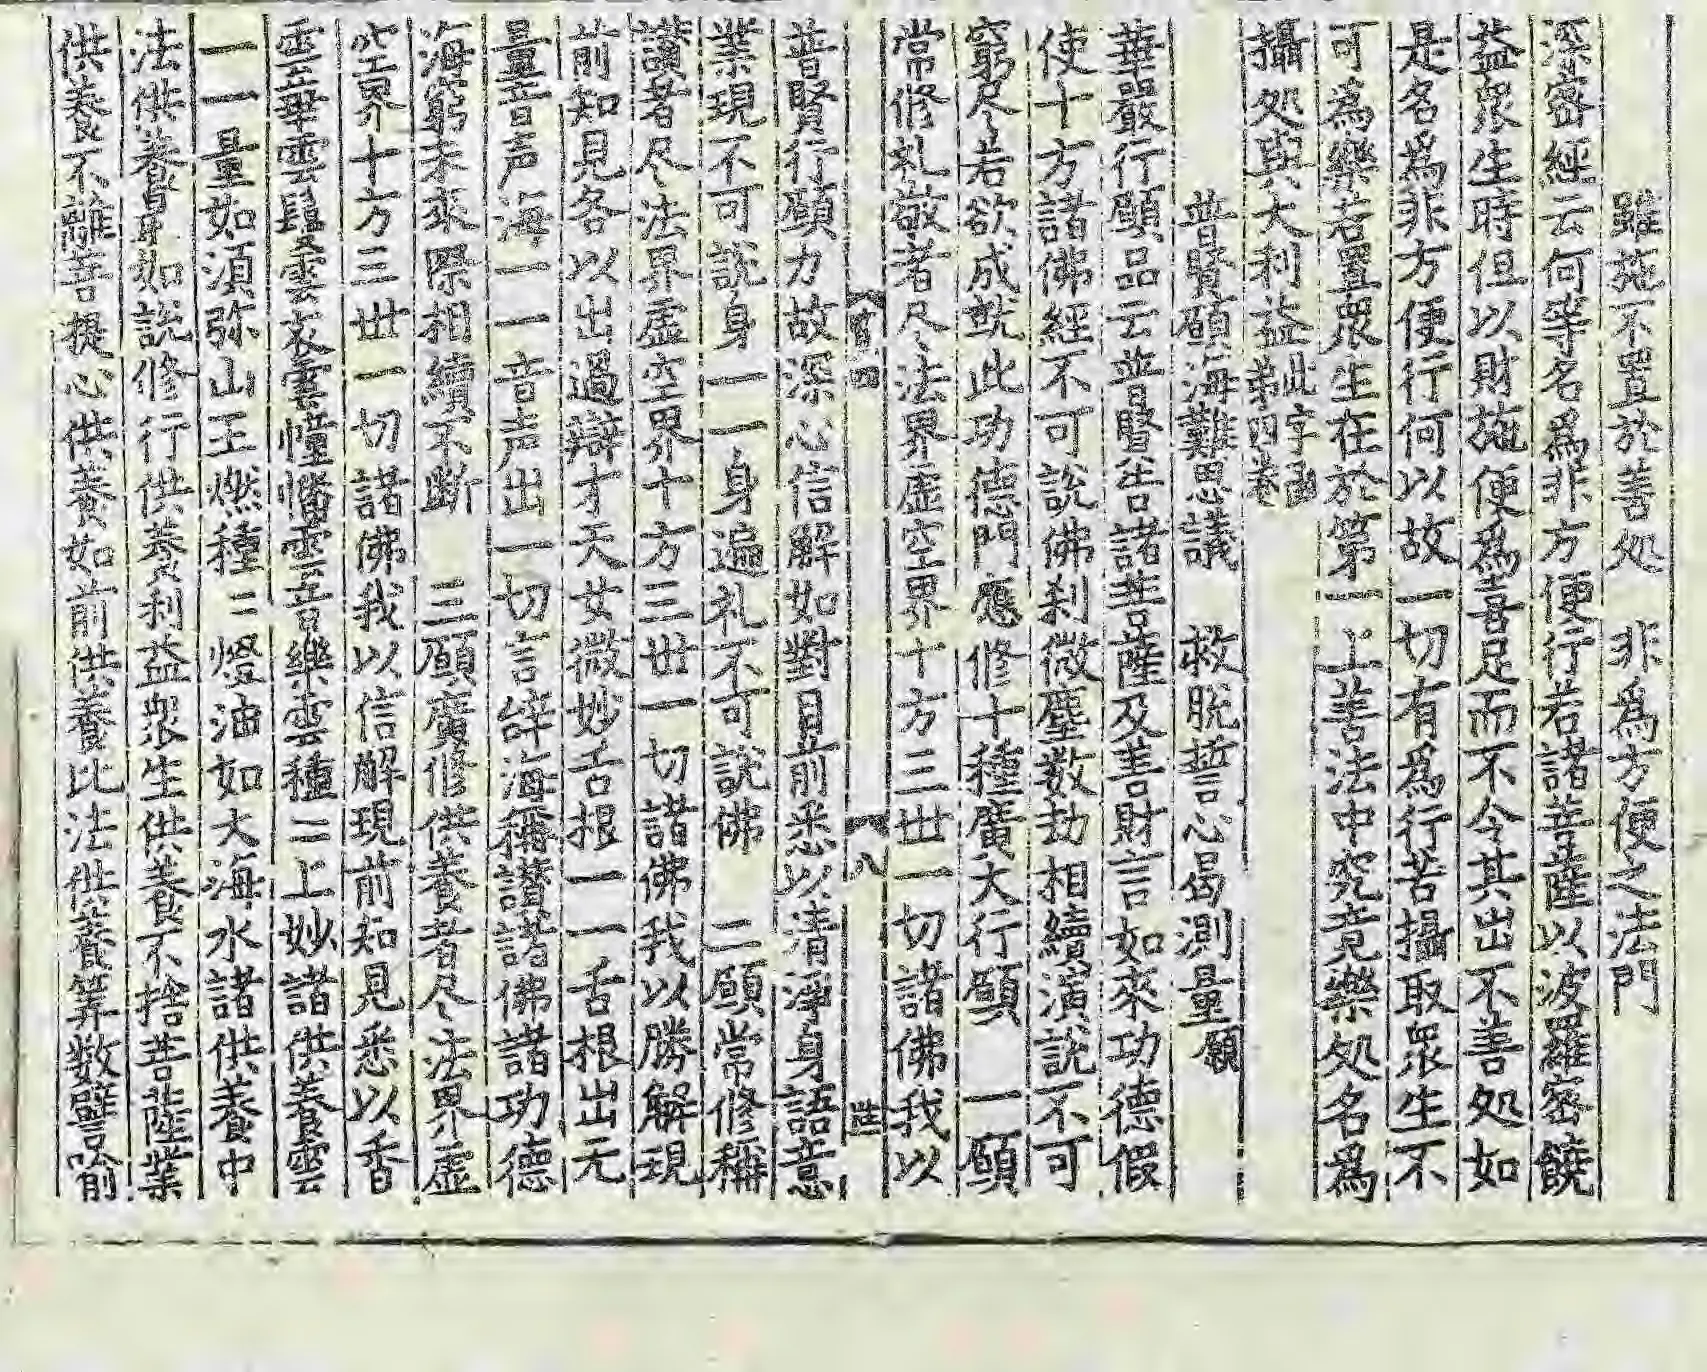 雖施不置於善処　非為方便之法門
深密經云何等名為非方便行若諸菩薩以波羅密饒
益衆生時但以財施便為喜足而不令其出不善処如
是名為非方便行何以故一切有為行苦攝取衆生不
可為樂若置衆生在於第一上善法中究竟樂処名為
攝処與大利益此字函第四卷
普賢碩海難思議　救脱誓心曷測量願
華嚴行願品云普賢告諸菩薩及善財言如來功德假
使十方諸佛經不可說佛刹微塵数劫相續演說不可
窮尽若欲成就此功德門應修十種廣大行願　一願
常修礼敬者尽法界虛空界十方三世一切諸佛我以
普賢行願力故深心信解如對目前悉以清淨身語意
業現不可說身一一身遍礼不可說佛　二願常修稱
讚者尽法界虛空界十方三世一切諸佛我以勝解現
前知見各以出過辯才天女微妙舌根一一舌根出无
量音声海一一音声出一切言辝海稱讃諸佛諸功德
海窮未來際相續不斷　三願廣修供養者尽法界虛
空界十方三世一切諸佛我以信解現前知見悉以香
雲華雲鬘雲衣雲幢幡雲音樂雲種〻上妙諸供養雲
一一量如湏弥山王燃種〻燈油如大海水諸供養中
法供養冣如說修行供養利益衆生供養不捨菩薩業
供養不離菩提心供養如前供養比法供養筭数譬喻